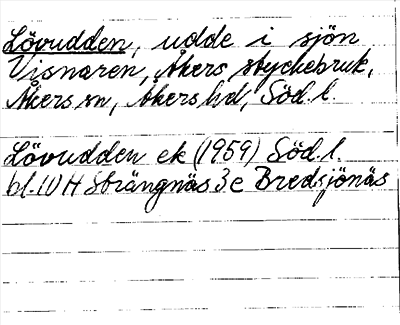 Lövudden, udde i sjön
Visnaren, Åkers styckebruk,
Åkers sn, Åkers hd, Söd. l.
Lövudden ek (1959) Söd. l.
bl. 10 H Strängnäs 3 e Bredsjönäs